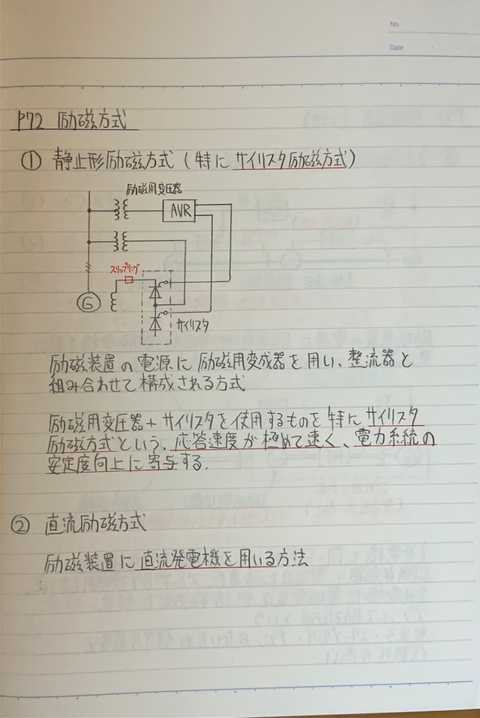 No.
Date
P72 励磁方式
① 静止形励磁方式 (特に サイリスタ励磁方式)
励磁用変圧器
AVR
スリップリング
G
サイリスタ
励磁装置の電源に励磁用変成器を用い、整流器と
組み合わせて構成される方式
励磁用変圧器+サイリスタを使用するものを特にサイリスタ
励磁方式という。応答速度が極めて速く、電力系統の
安定度向上に寄与する.
② 直流励磁方式
励磁装置に直流発電機を用いる方法